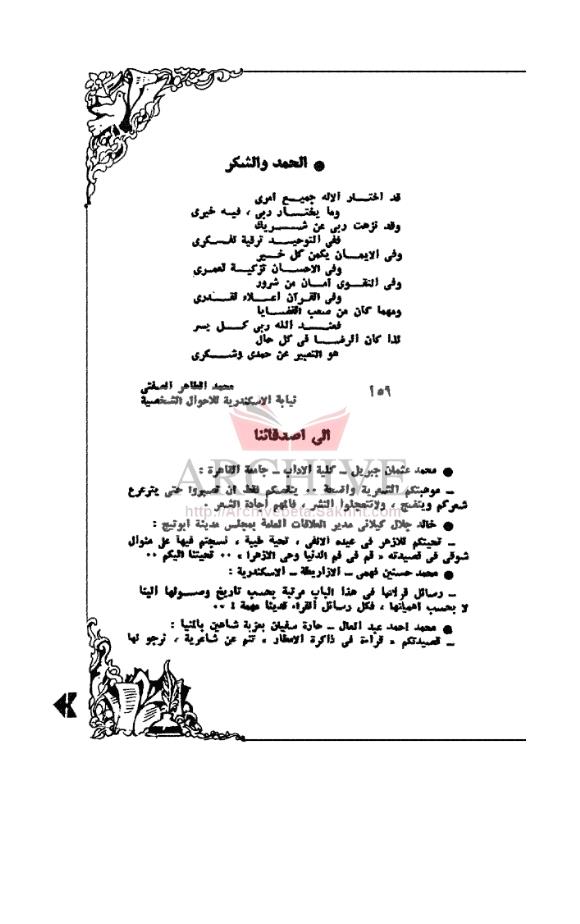 ● الحمد والشكر
قد اختــار الاله جميــع امرى
وما يختــار ربى ، فيــه خيرى
وقد نزهت ربى عن شــريك
ففى التوحيــد ترقية لفــكرى
وفى الايمــان يكمن كل خــير
وفى الاحســان تزكيــة لعمرى
وفى التقــوى أمــان من شرور
وفى القــرآن اعــلاء لقــدرى
ومهما كان من صعب القضــايا
فعنــد الله ربى كــل يسر
لذا كان الرضــا فى كل حال
هو التعبير عن حمدى وشــكرى
محمد الطاهر الصفتى
نيابة الاسكندرية للاحوال الشخصية
١٥٩
الى اصدقائنا
ARCHIVE
● محمد عثمان جبريل ــ كلية الاداب ــ جامعة القاهرة :
ــ موهبتكم الشعرية واضحة ٠٠ ينقصكم فقط أن تصبروا حتى يترعرع
شعركم وينضج ، ولا تتعجلوا النشر ، فالمهم اجادة الشعر ٠
http://Archivebeta.Sakhrit.com
● خالد جلال كيلانى مدير العلاقات العامة بمجلس مدينة ابوتيج :
ــ تحيتكم للازهر فى عيده الالفى ، تحية طيبة ، نسجتم فيها على منوال
شوقى فى قصيدته « قم فى فم الدنيا وحى الازهرا » ٠٠ تحيتنا اليكم ٠٠
● محمد حسنين فهمى ــ الازاريطة ــ الاسكندرية :
ــ رسائل قرائها فى هذا الباب مرتبة بحسب تاريخ وصــولها الينا
لا بحسب اهميتها ، فكل رسائل القراء لدينا مهمة ! ٠٠
● محمد احمد عبد العال ــ حارة سفيان بعزبة شاهين بالمنيا :
ــ قصيدتكم « قراءة فى ذاكرة الامطار » تنم عن شاعرية ، نرجو لها